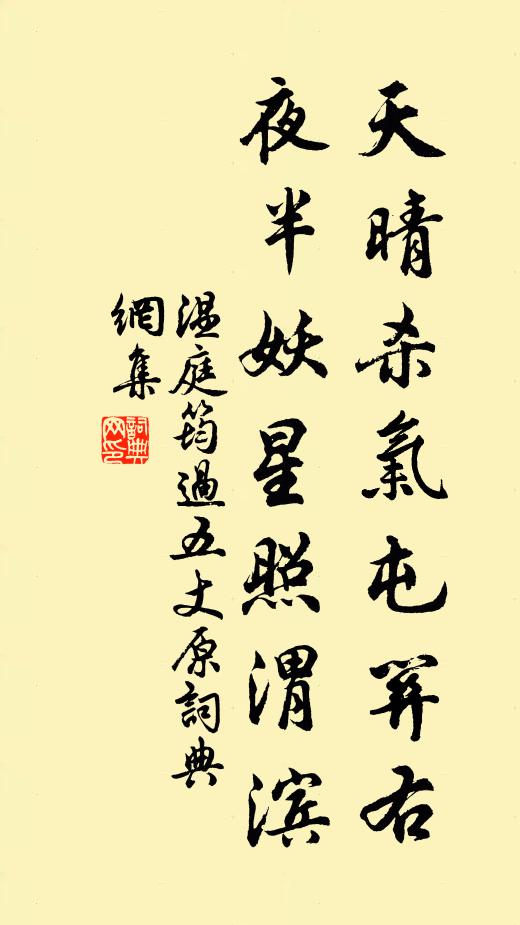 天晴杀氣屯関右
夜半妖星照渭滨
温庭筠過五丈原詞典
網集
詞典
网印